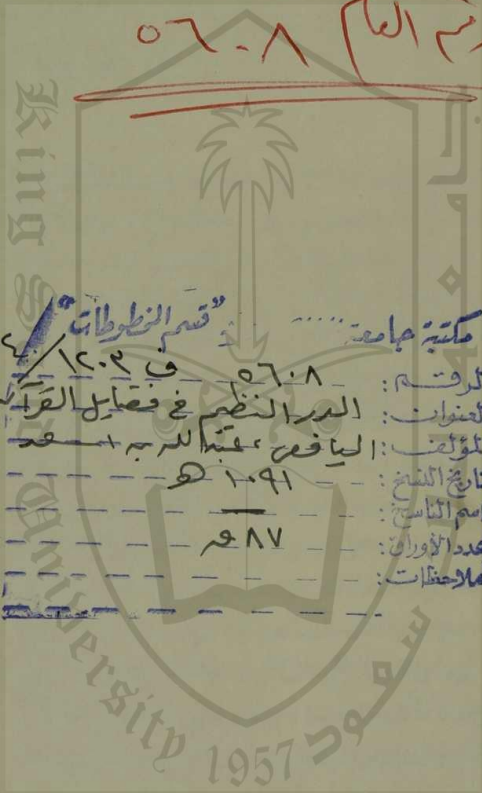 رقم العام ٥٦٠٨
مكتبة جامعة ..... "قسم المخطوطات"
الرقم: ٥٦٠٨ ف ١٢٠٣/٤
العنوان: الدر النظيم في فضايل القرآن
المؤلف: اليافعي، عبدالله بن أسعد
تاريخ النسخ: ١٠٩١ هـ
اسم الناسخ: —
عدد الأوراق: ٨٧ ق
ملاحظات:
King
University
1957
سعود